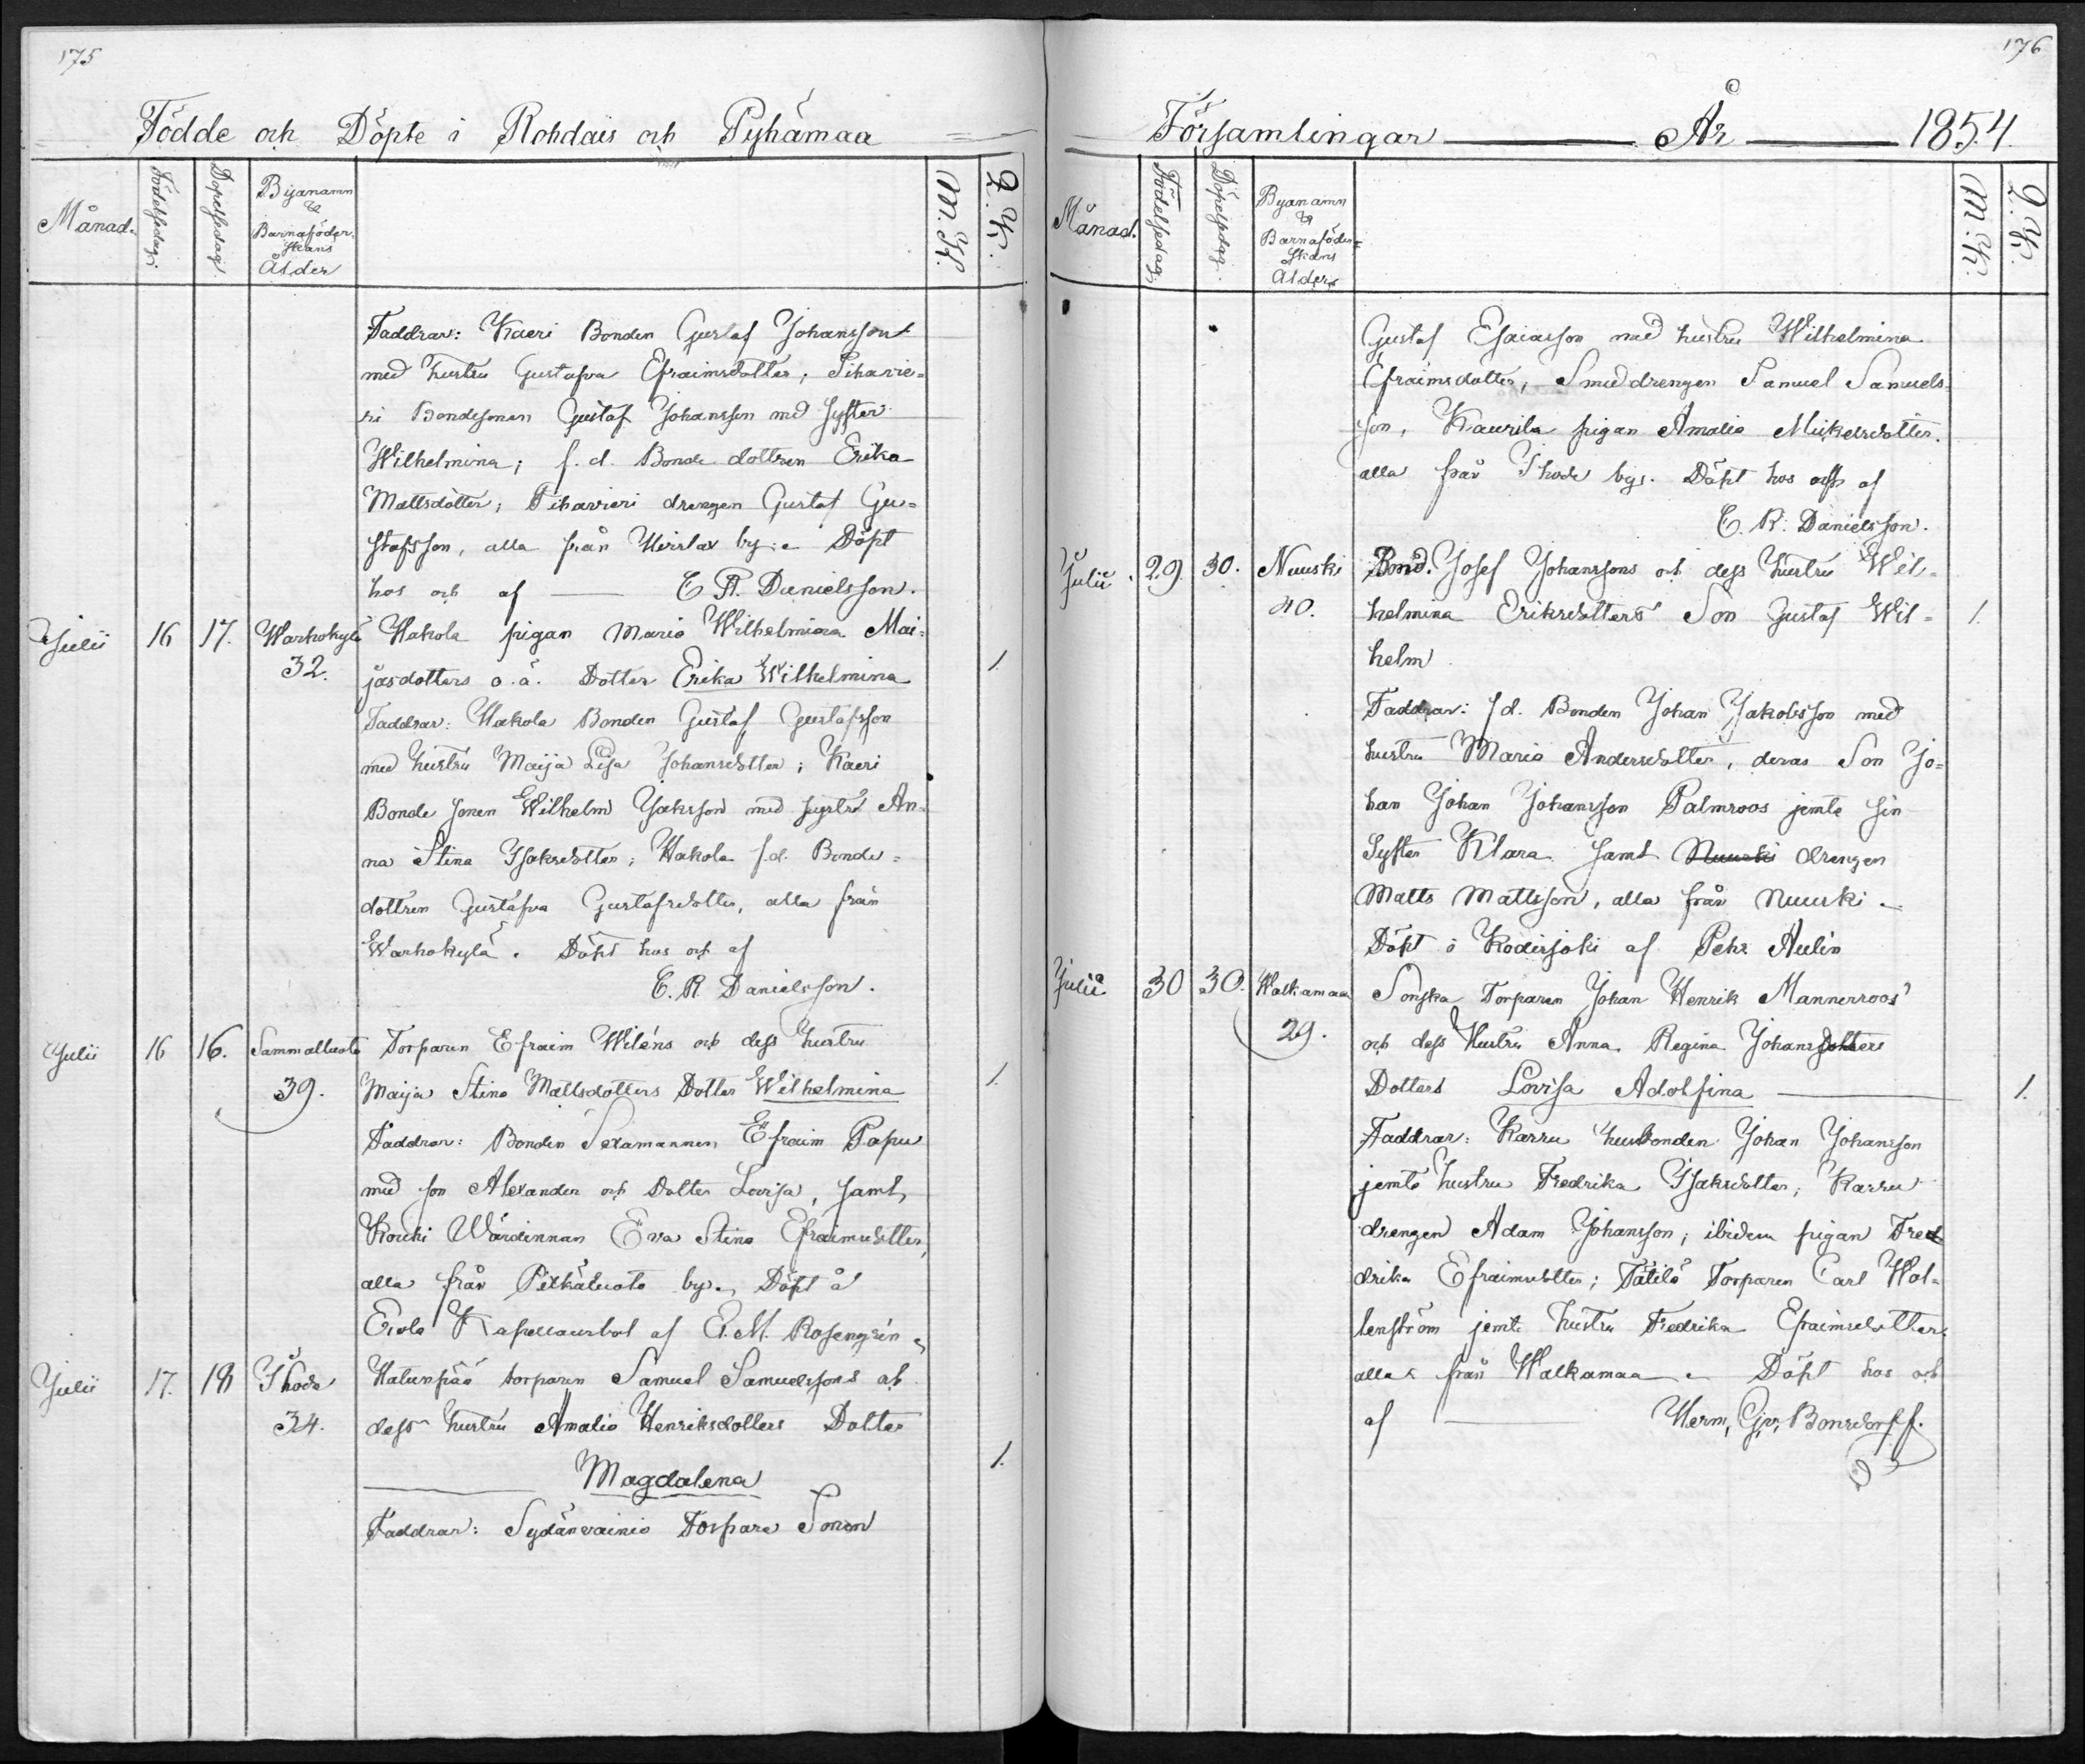 175
Födde och Döpte i Rohdais och Pyhämaa
Månad. Födelsedag. Döpelsedag. Byanamn & Barnaföder-skans Ålder M. K. Q. K.
Faddrar: Kaeri Bonden Gustaf Johansson
med hustru Gustafva Efraimsdotter; Tiharie=
ri Bondesonen Gustaf Johansson med syster
Wilhelmina; f. d. Bonde dottren Erika
Mattsdotter; Tiharieri drengen Gustaf Gu=
stafsson, alla från Hirslax by. Döpt
hos och af E. R. Danielsson.
Julii 16 17. Warhokylä Hakola pigan Maria Wilhelmina Mai=
32. jasdotters o. ä. Dotter Erika Wilhelmina 1.
Faddrar: Hakola Bonden Gustaf Gustafsson
med hustru Maija Lisa Johansdotter; Kaeri
Bonde sonen Wilhelm Isaksson med syster An=
na Stina Isaksdotter; Hakola f.d. Bonde=
dottren Gustafva Gustafsdotter, alla från
Warhokylä. Döpt hos och af
E. R. Danielsson.
Julii 16 16. Sammalluoto Torparen Efraim Wiléns och dess hustru
39. Maija Stina Mattsdotters Dotter Wilhelmina 1.
Faddrar: Bonden Sexmannen Efraim Papu
med son Alexander och Dotter Lovisa, samt
Kouki Wärdinnan Eva Stina Efraimsdotter,
alla från Pitkäluoto by. Döpt å
Eivola Kapellansbol af E. M. Rosengrén
Julii 17. 18 Ihode Halunpää torparen Samuel Samuelssons och
34. dess hustru Amalia Henriksdotters Dotter
Magdalena 1.
Faddrar: Sydänvainio Torpare Sonen
176
Församlingar År 1854.
Månad. Födelsedag. Döpelsedag. Byanamn & Barnaföder=skans Ålder M. K. Q. K.
Gustaf Esaiasson med hustru Wilhelmina
Efraimsdotter, Smeddrengen Samuel Samuels-
son, Kaurila pigan Amalia Mickelsdotter.
alla från Ihode by. Döpt hos och af
E. R. Danielsson.
Julii 29. 30. Nuuski Bond. Josef Johanssons och dess hustru Wil=
40. helmina Eriksdotters Son Gustaf Wil= 1.
helm
Faddrar: f d. Bonden Johan Jakobsson med
hustru Maria Andersdotter, deras Son Jo=
han Johan Johansson Palmroos jemte sin
Syster Klara samt Nuuski drengen
Matts Mattsson, alla från Nuuski.
Döpt i Kodisjoki af Pehr Aulin
Julii 30 30. Walkamaa Sonska Torparen Johan Henrik Mannerroos'
29. och dess Hustru Anna Regina Johansdotters
Dotters Lovisa Adolfina 1.
Faddrar: Karru husbonden Johan Johansson
jemte hustru Fredrika Isaksdotter; Karru
drengen Adam Johansson; ibidem pigan Fred
drika Efraimsdotter; Tätilä Torparen Carl Wal=
lenström jemte hustru Fredrika Efraimsdotter
alla från Walkamaa. Döpt hos och
af Herm. Gr. Bonsdorff.